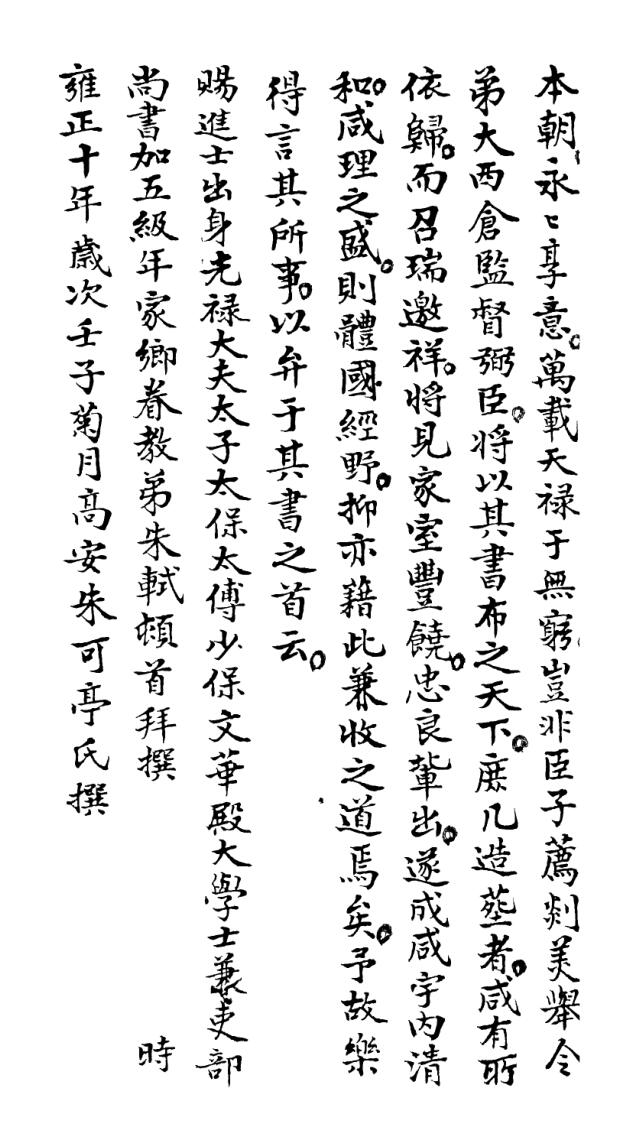 本朝永々享意萬載天祿于無窮豈非臣子薦剡美舉今
弟大西倉監督弼臣將以其書布之天下庶几造塋者咸有所
依歸而召瑞邀祥將見家室豐饒忠良輩出遂成咸宇內清
和咸理之盛則體國經野抑亦籍此兼收之道焉矣予故樂
得言其所事以弁于其書之首云
賜進士出身光祿大夫太子太保太傅少保文華殿大學士兼吏部
尚書加五級年家鄉眷教弟朱軾頓首拜撰 時
雍正十年歲次壬子菊月高安朱可亭氏撰